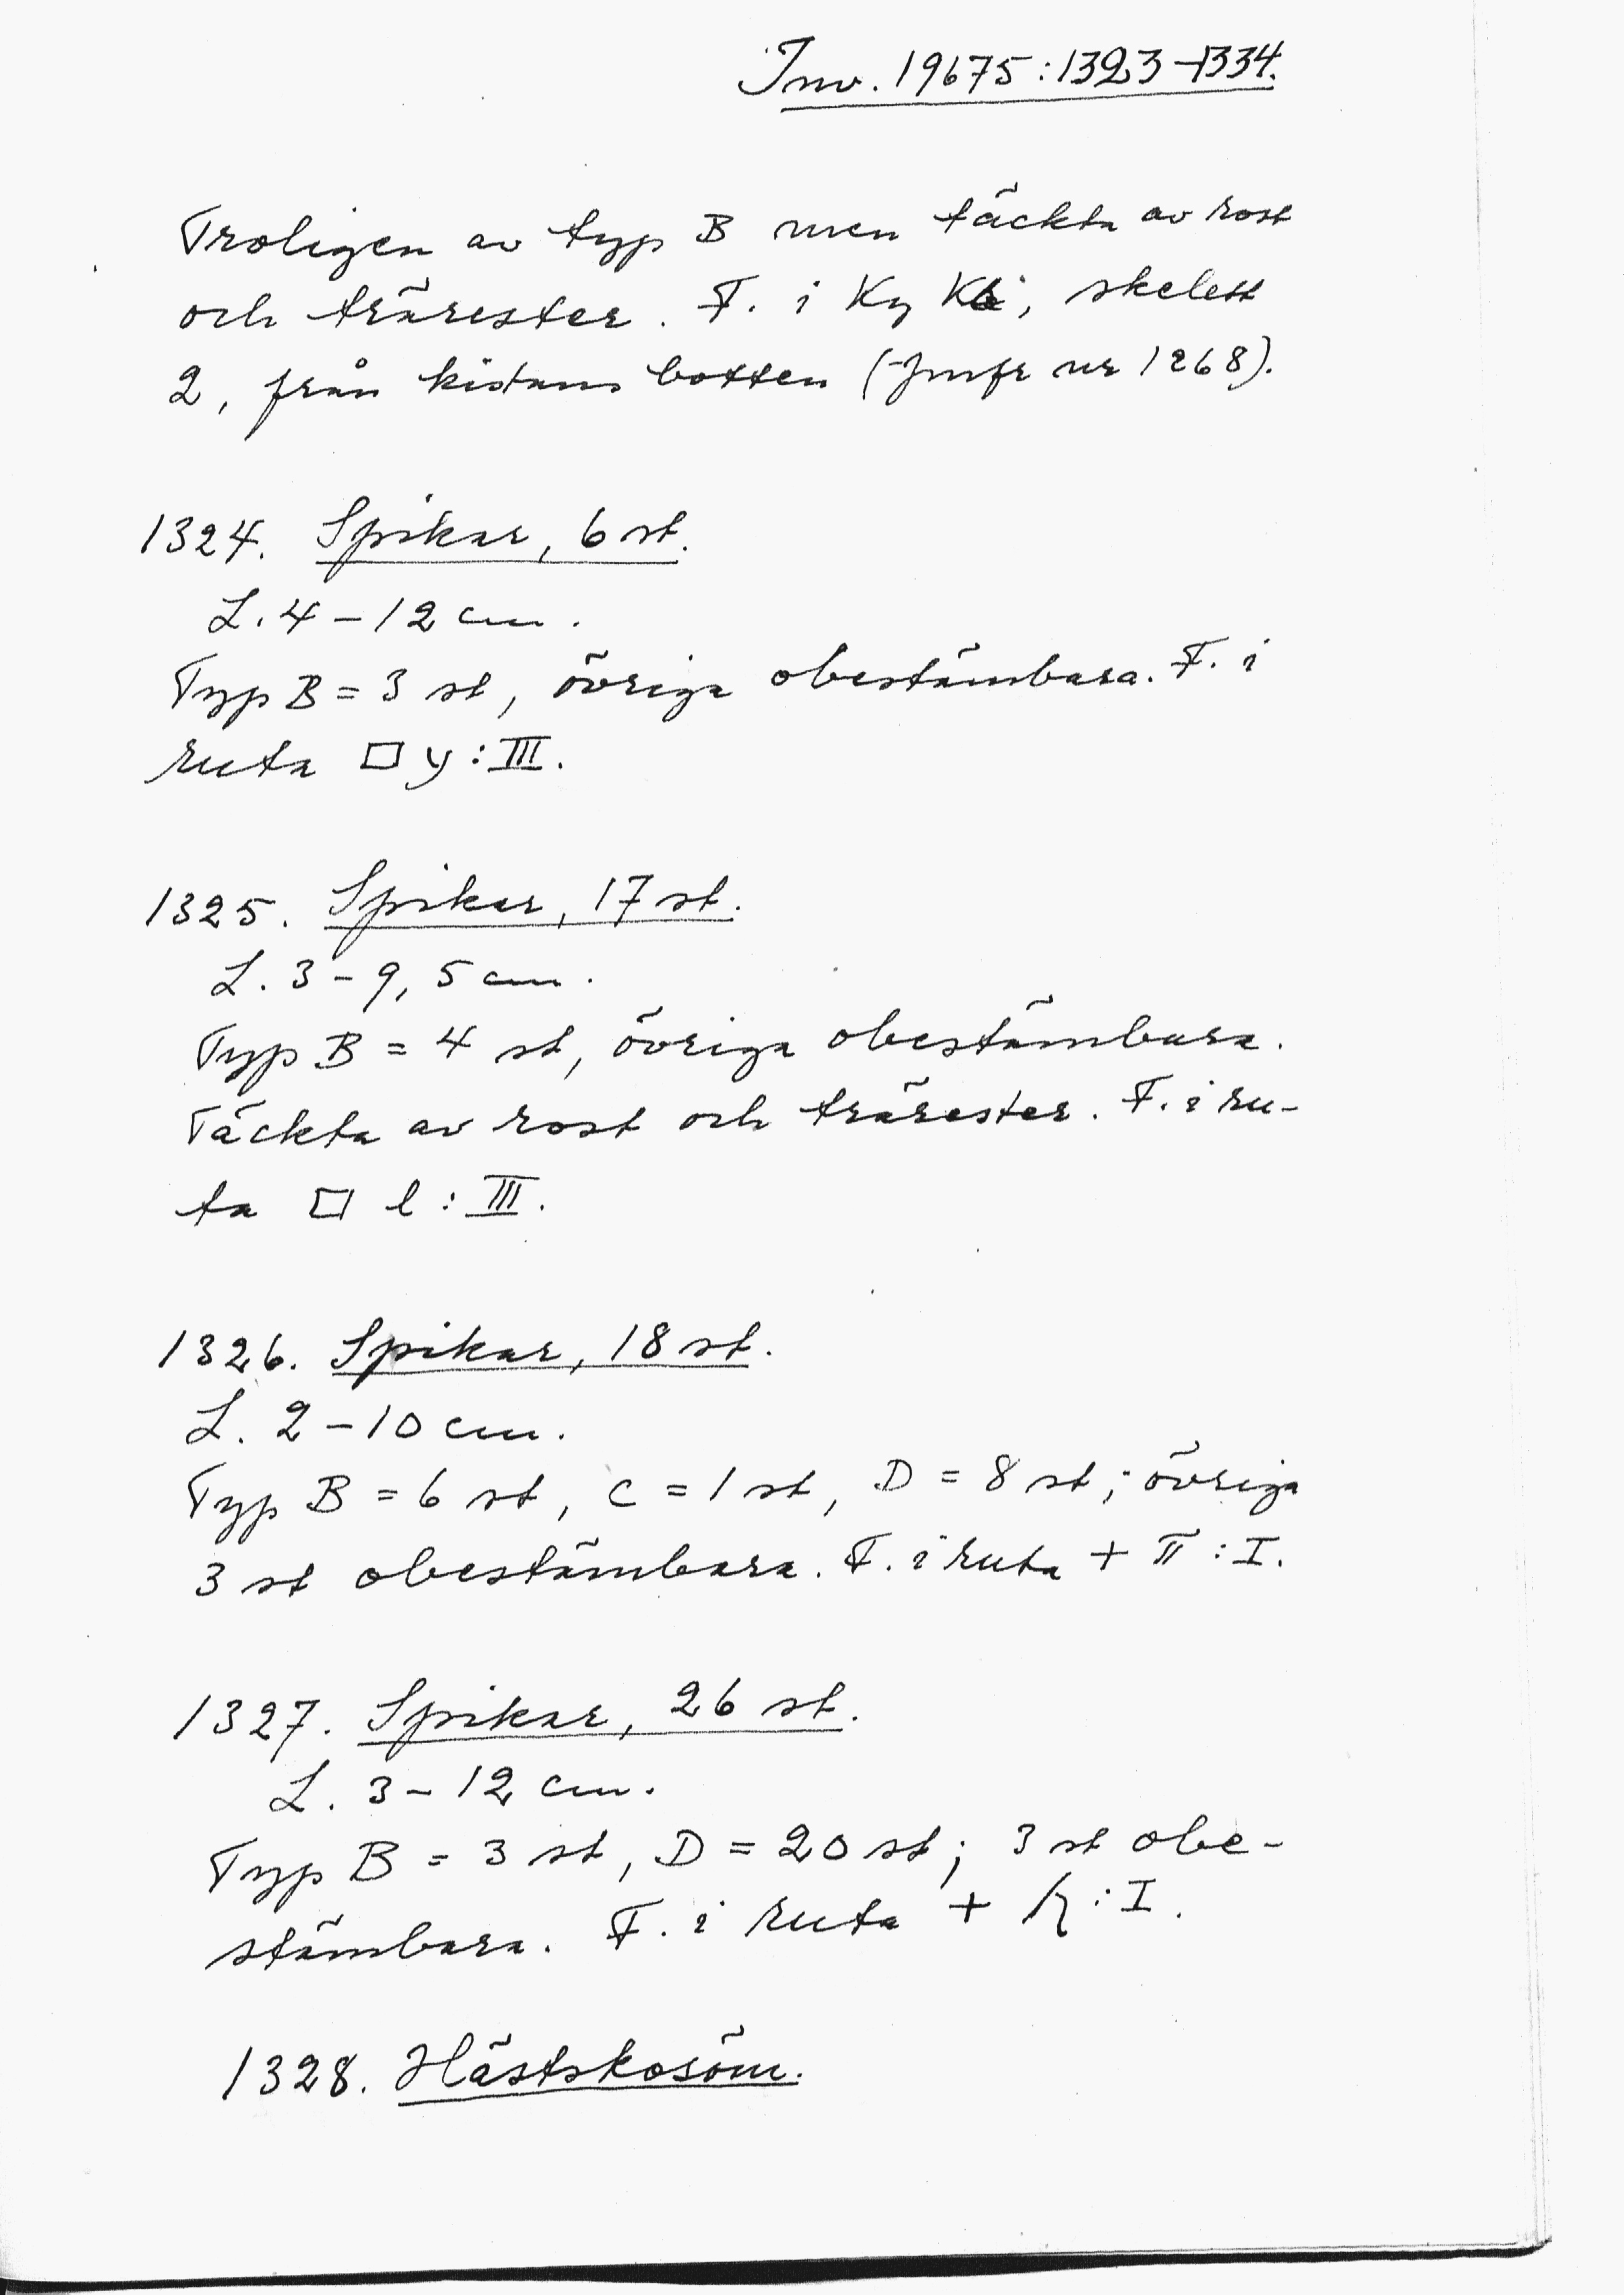 Inv. 19675:1323-1334.
Troligen av typ B men täckta av rost
och trärester. F. i Ky, skelett
2, från kistans botten (Jmfr nr 1268).
1324. Spikar, 6 st.
L. 4-12 cm.
Typ B = 3 st, övriga obestämbara. F. i
ruta □ y:III.
1325. Spikar, 17 st.
L. 3-9,5 cm.
Typ B = 4 st, övriga obestämbara.
Täckta av rost och trärester. F. i ru-
ta □ l:III.
1326. Spikar, 18 st.
L. 2-10 cm.
Typ B = 6 st, C = 1 st, D = 8 st; övriga
3 st obestämbara. F. i ruta + π:I.
1327. Spikar, 26 st.
L. 3-12 cm.
Typ B = 3 st, D = 20 st; 3 st obe-
stämbara. F. i ruta + :I.
1328. Hästskosöm.